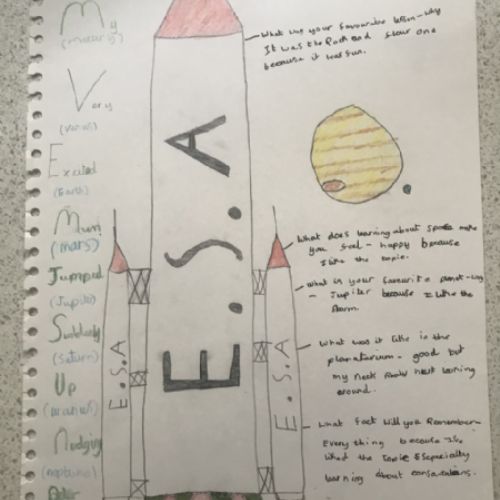 My
(mercury)
Very
(venus)
Excited
(Earth)
Mum
(mars)
Jumped
(Jupiter)
Suddenly
(Saturn)
Up
(uranus)
Nudging
(neptune)
E.S.A
E.S.A
E.S.A
What was your favourite lesson - why
It was the Rock and flour one
because it was fun.
What does learning about space make
you feel - happy because
I like the topic.
What is your favourite planet - why
- Jupiter because I like the
storm.
What was it like in the
planatarum - good but
my neck hurt
around.
What fact will you Remember -
Every thing because I
liked the topic Especially
learning about